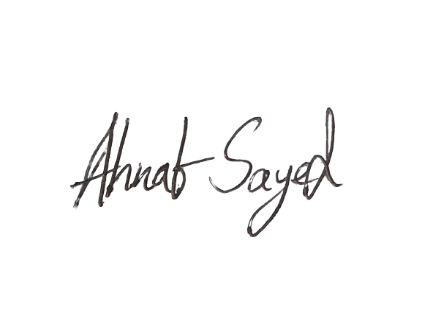 Ahnaf Sayed